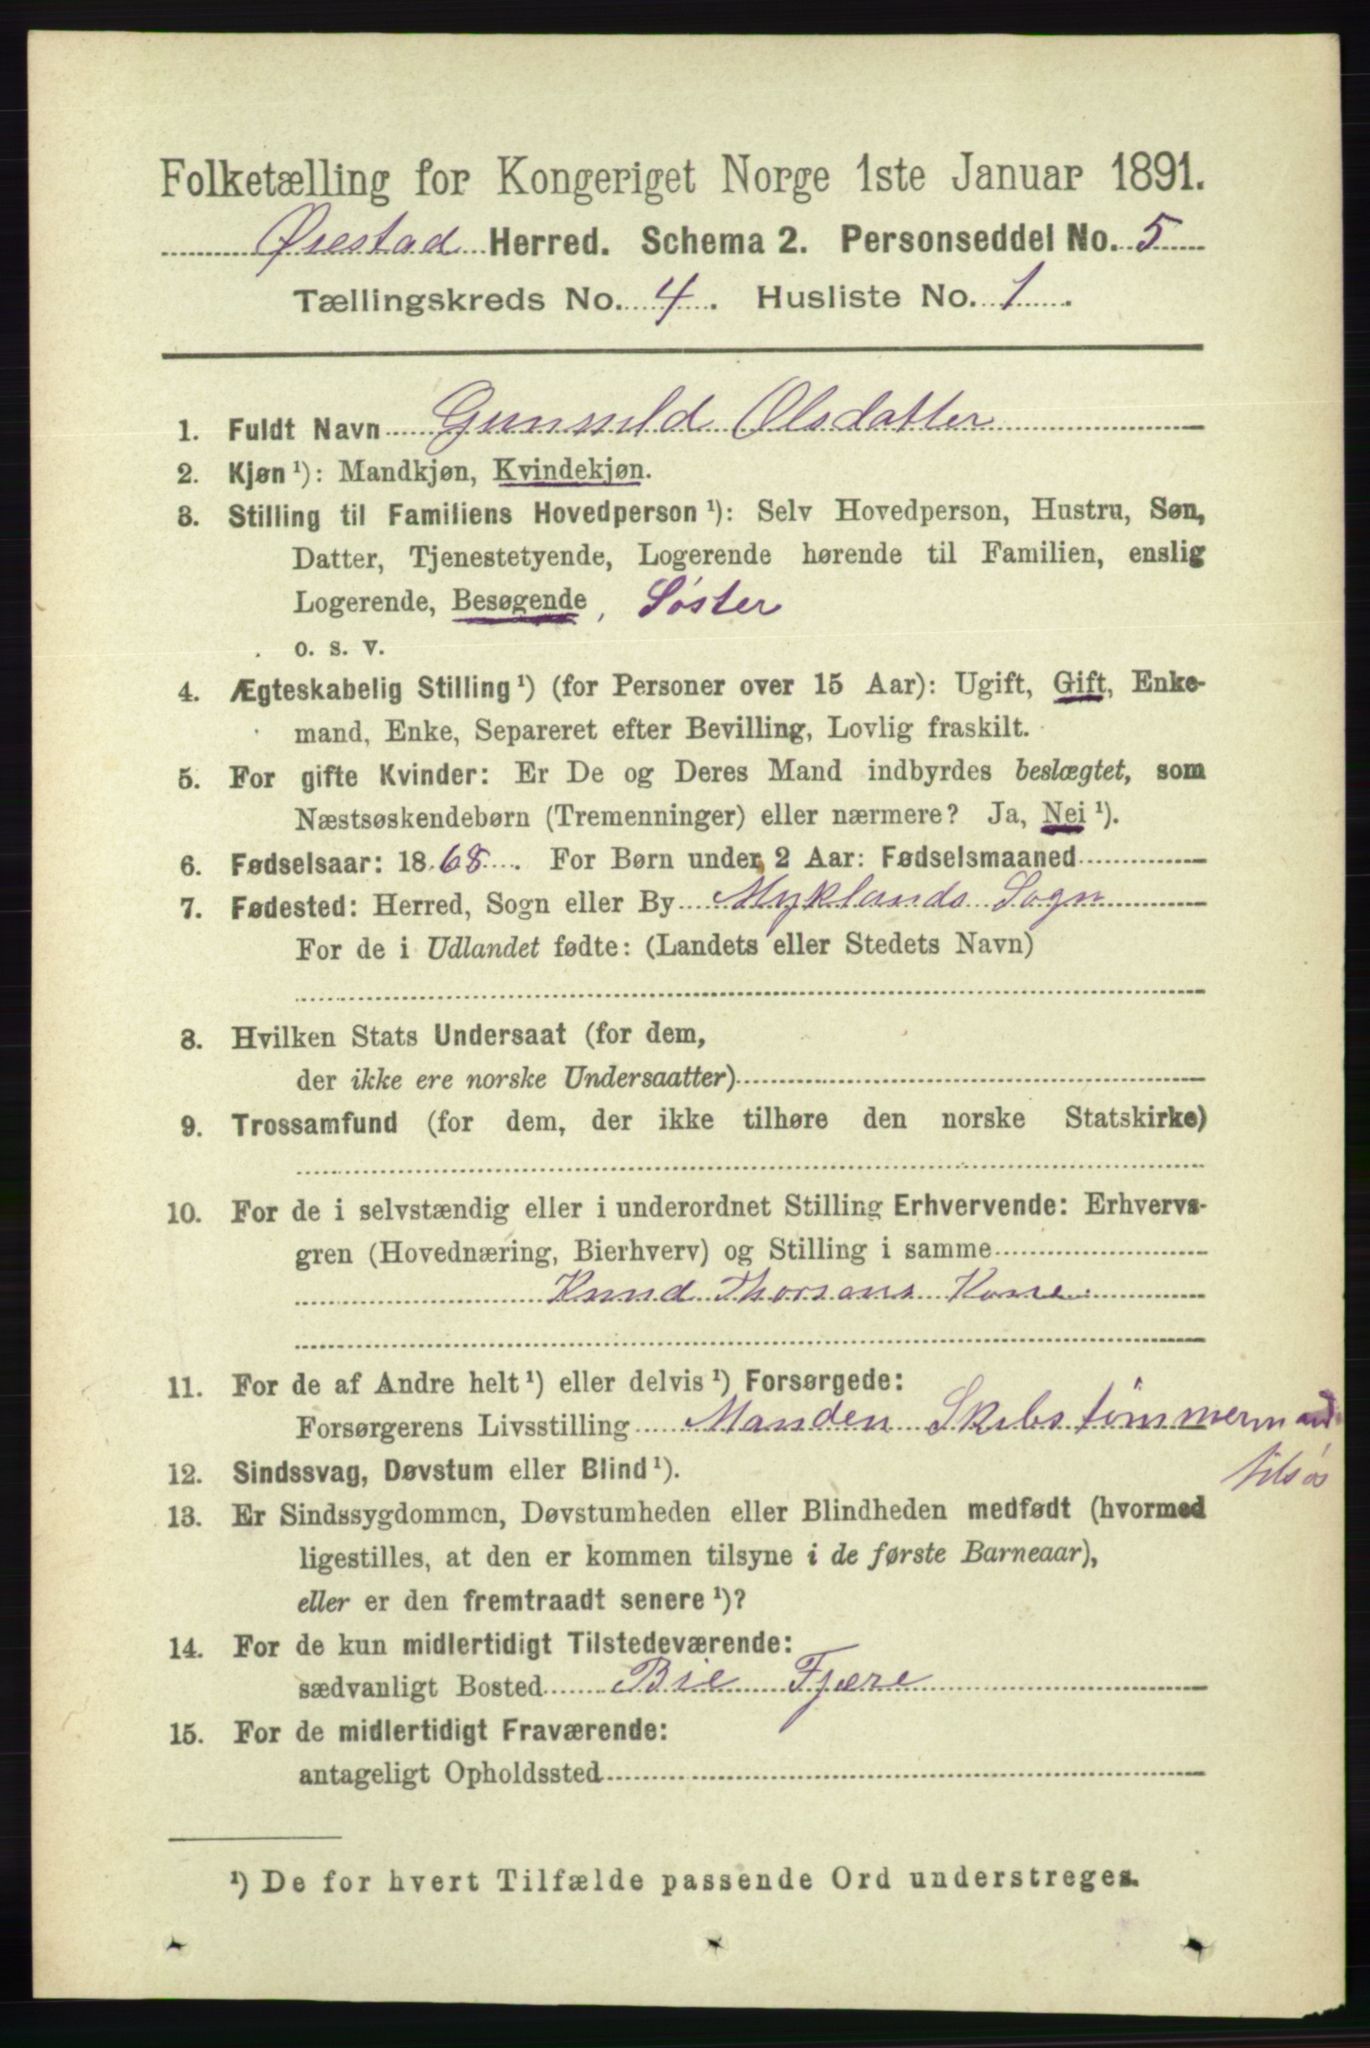 Folketælling for Kongeriget Norge 1ste Januar 1891.
Øiestad Herred. Schema 2. Personseddel No. 5
Tællingskreds No. 4. Husliste No. 1.
1. Fuldt Navn Gunnild Olsdatter
2. Kjøn ¹): Mandkjøn, Kvindekjøn.
3. Stilling til Familiens Hovedperson ¹): Selv Hovedperson, Hustru, Søn,
Datter, Tjenestetyende, Logerende hørende til Familien, enslig
Logerende, Besøgende, Søster
o. s. v.
4. Ægteskabelig Stilling ¹) (for Personer over 15 Aar): Ugift, Gift, Enke-
mand, Enke, Separeret efter Bevilling, Lovlig fraskilt.
5. For gifte Kvinder: Er De og Deres Mand indbyrdes beslægtet, som
Næstsøskendebørn (Tremenninger) eller nærmere? Ja, Nei ¹).
6. Fødselsaar: 1868. For Børn under 2 Aar: Fødselsmaaned
7. Fødested: Herred, Sogn eller By Myklands Sogn
For de i Udlandet fødte: (Landets eller Stedets Navn)
8. Hvilken Stats Undersaat (for dem,
der ikke ere norske Undersaatter)
9. Trossamfund (for dem, der ikke tilhøre den norske Statskirke)
10. For de i selvstændig eller i underordnet Stilling Erhvervende: Erhvervs-
gren (Hovednæring, Bierhverv) og Stilling i samme
Knud Thorsens Kone
11. For de af Andre helt ¹) eller delvis ¹) Forsørgede:
Forsørgerens Livsstilling Manden Skibstømmermand
tilsøs
12. Sindssvag, Døvstum eller Blind ¹).
13. Er Sindssygdommen, Døvstumheden eller Blindheden medfødt (hvormed
ligestilles, at den er kommen tilsyne i de første Barneaar),
eller er den fremtraadt senere ¹)?
14. For de kun midlertidigt Tilstedeværende:
sædvanligt Bosted Bie Fjære
15. For de midlertidigt Fraværende:
antageligt Opholdssted
¹) De for hvert Tilfælde passende Ord understreges.